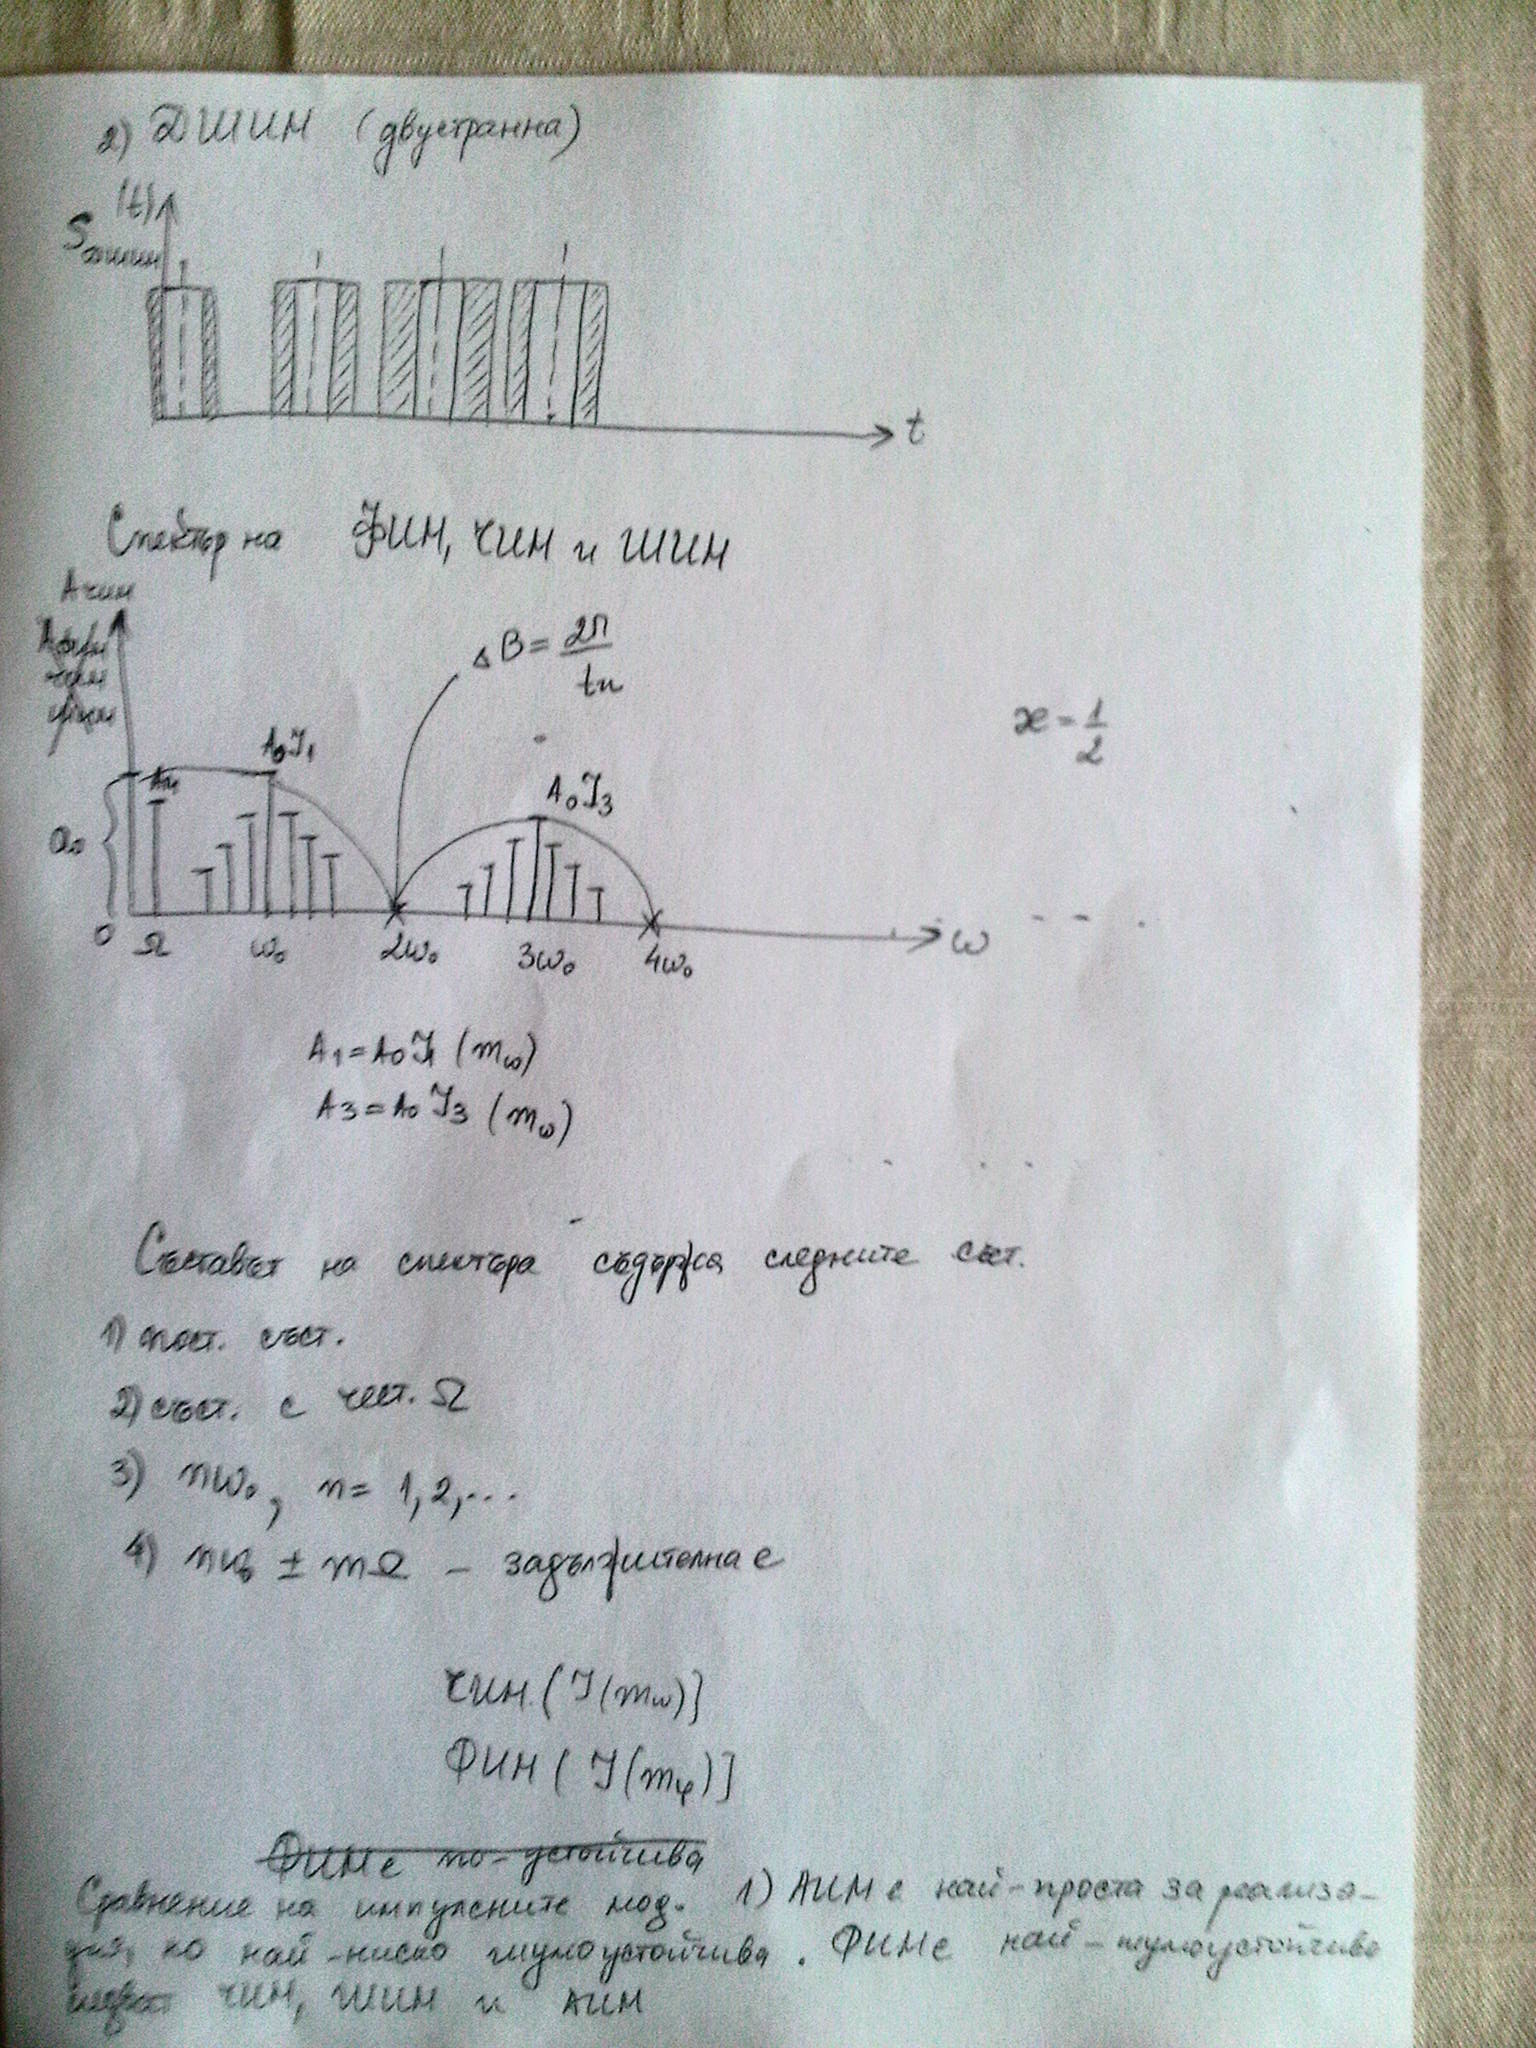 2) ДШИМ (двустранна)
(t)
Sдшим
t
Спектър на ФИМ, ЧИМ и ШИМ
Aчим
ΔB = 2π/tи
æ = 1/2
A0J1
A0J3
AΩ
a0
0 Ω ω0 2ω0 3ω0 4ω0 ω
A1 = A0J1 (mω)
A3 = A0J3 (mω)
Съставът на спектъра съдържа следните със.
1) пост. със.
2) със. с чест. Ω
3) nω0, n = 1, 2, ...
4) nω0 ± mΩ – задължителна е
ЧИМ (J(mω)]
ФИМ (J(mφ)]
ФИМ е по-устойчива
Сравнение на импулсните мод. 1) АИМ е най-проста за реализа-
ция, но най-ниско шумоустойчива. ФИМ е най-шумоустойчива
следват ЧИМ, ШИМ и АИМ